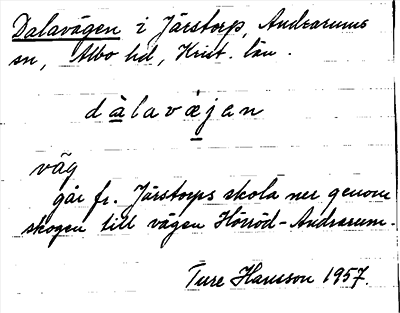 Dalavägen i Järstorp, Andrarums
sn, Albo hd, Krist. län.
dàlavæ̀jen
väg
går fr. Järstorps skola ner genom
skogen till vägen Hörröd-Andrarum.
Ture Hansson 1957.